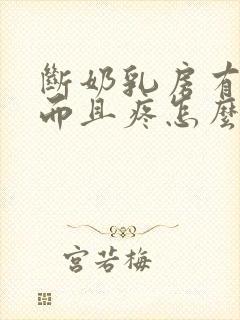 斷奶乳房有
而且疼怎麼
宮若梅